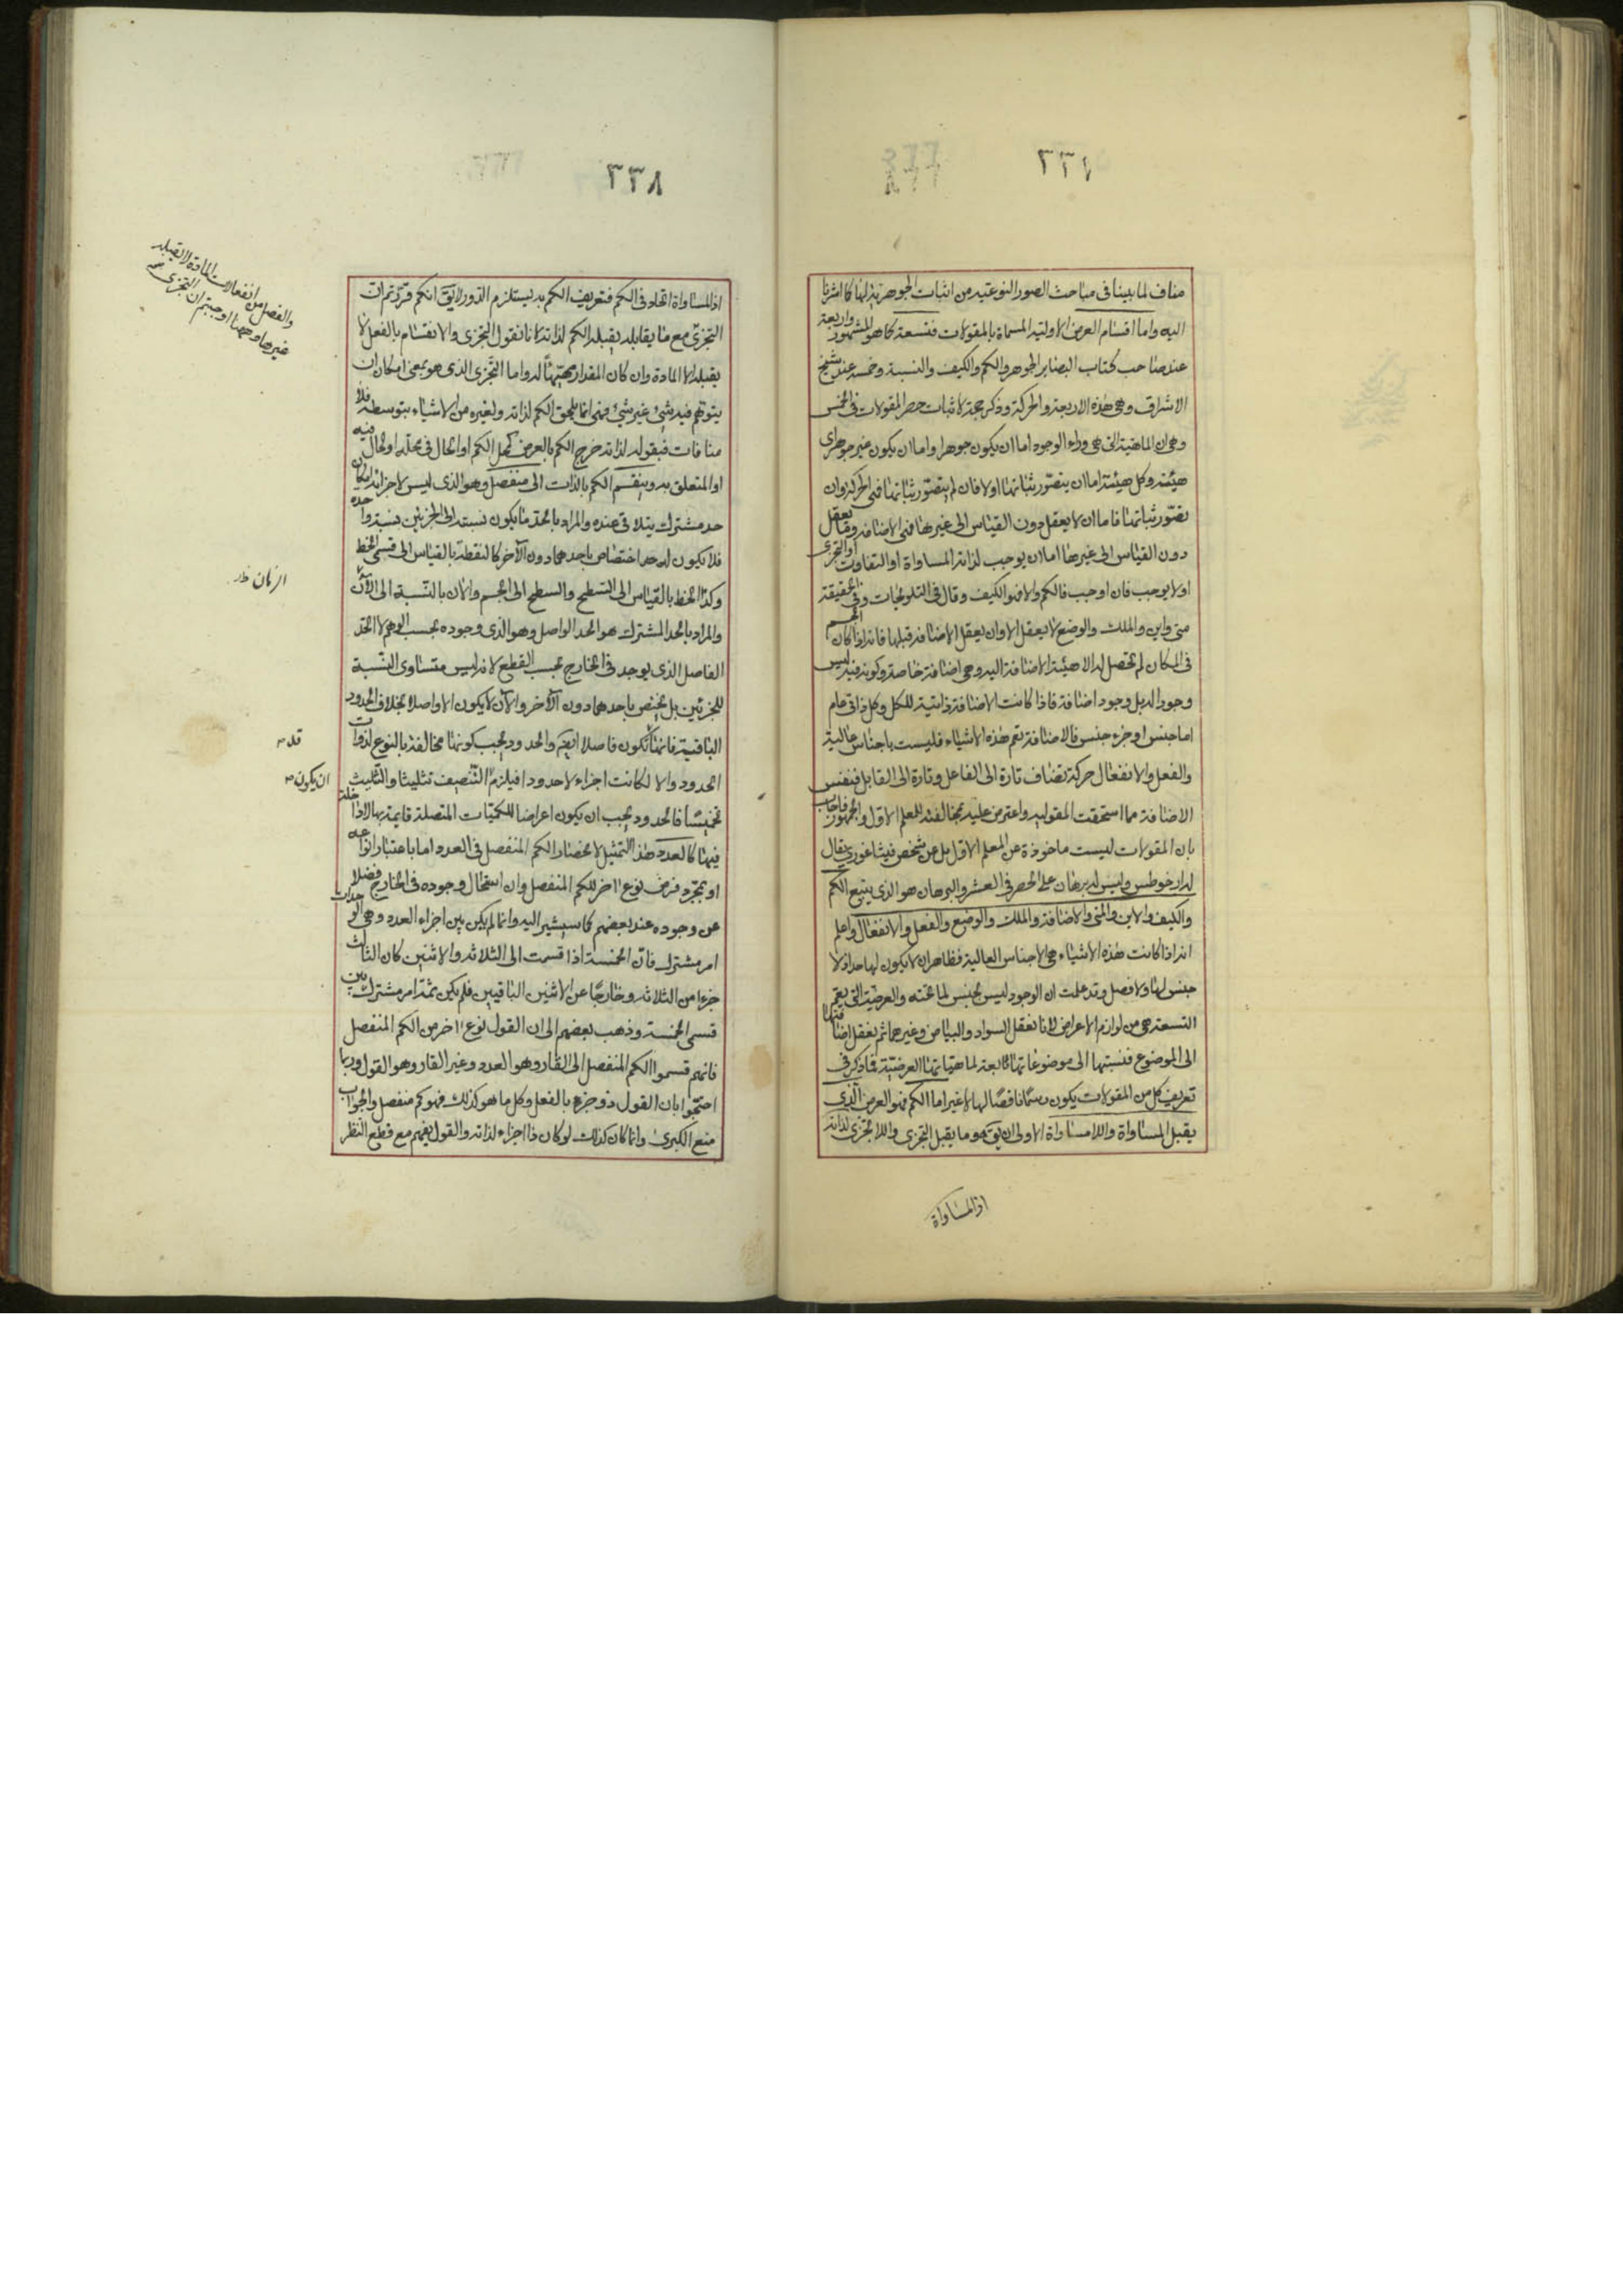 ٣٣٧
مناف لما بينا فى مباحث الصور النوعية من اثبات الجوهرية لها كما اشرنا
اليه واما اقسام العرض الاولية المسماة بالمقولات فتسعة كما هو المشهور واربعة
عند صاحب كتاب البصاير الجوهر والكم والكيف والنسبة وخمسة عند شيخ
الاشراق وهى هذه الاربعة والحركة وذكر حجة لاثبات حصر المقولات فى الخمس
وهى ان الماهية التى هى وراء الوجود اما ان يكون جوهرا واما ان يكون غير جوهر اى
هيئة وكل هيئة اما ان يتصور ثباتها اولا فان لم يتصور ثباتها فهى الحركة وان
تصور ثباتها فاما ان لا يعقل دون القياس الى غيرها فهى الاضافة وما يعقل
دون القياس الى غيرها اما ان يوجب لذاته المساواة او التفاوت او التجزى
اولا يوجب فان اوجب فالكم والا فهو الكيف وقال فى التلويحات وفى الحقيقة
متى واين والملك والوضع لا يعقل الا وان يعقل الاضافة قبلها فانه اذا كان الجسم
فى المكان لم تحصل له الا هيئة الاضافة اليه وهى اضافة خاصة وكونه فيه ليس
وجود اله بل وجود اضافة فاذا كانت الاضافة ذاتية للكل وكل ذاتى عام
اما جنس او جزء جنس فالاضافة تعم هذه الاشياء فليست باجناس عالية
والفعل والانفعال حركة تضاف تارة الى الفاعل وتارة الى القابل فنفس
الاضافة مما استحقت المقولية واعترض عليه بمخالفته للمعلم الاول والجمهور فاجاب
بان المقولات ليست ماخوذة عن المعلم الاول بل عن شخص فيثاغورى يقال
له ارخوطس وليس له برهان على الحصر فى العشر والبرهان هو الذى يتبع الكم
والكيف والاين والمتى والاضافة والملك والوضع والفعل والانفعال واعلم
انه اذا كانت هذه الاشياء هى الاجناس العالية فظاهر ان لا يكون لها حد اذ لا
جنس لها ولا فصل وقد علمت ان الوجود ليس بجنس لما تحته والعرضية التى يعم
التسعة هى من لوازم الاعراض لانا نعقل السواد والبياض وغيرهما ثم نعقل اضافتها
الى الموضوع فنسبتها الى موضوعاتها تابعة لماهياتها العرضية فما ذكر فى
تعريف كل من المقولات يكون رسما ناقصا لها لا غير اما الكم فهو العرض الذى
يقبل المساواة واللا مساواة الاولى ان يق هو ما يقبل التجزى واللا تجزى لذاته
اذ المساواة
٣٣٨
اذ المساواة اتحاد فى الكم فتعريف الكم به يستلزم الدور لا يق انكم قررتم ان
التجزى مع ما يقابله يقبله الكم لذاته لانا نقول التجزى والانقسام بالفعل لا
يقبله الا المادة وان كان المقدار مهيئا له واما التجزى الذى هو بمعنى امكان ان
يتوهم فيه شئ غير شئ فهى انما يلحق الكم لذاته ولغيره من الاشياء بتوسطه فلا
منافات فبقوله لذاته خرج الكم بالعرض كمحل الكم او الحال فى محله او الحال فيه
او المتعلق به وينقسم الكم بالذات الى منفصل وهو الذى ليس لاجزائه امكان
حد مشترك يتلاقى عنده والمراد بالحد ما يكون نسبته الى الجزئين نسبة واحدة
فلا يكون له احد اختصاص باحدهما دون الآخر كالنقطة بالقياس الى قسمى الخط
وكذا الخط بالقياس الى السطح والسطح الى الجسم والان بالنسبة الى الآن
والمراد بالحد المشترك هو الحد الواصل وهو الذى وجوده بحسب الوهم لا الحد
الفاصل الذى يوجد فى الخارج بحسب القطع لانه ليس متساوى النسبة
للجزئين بل يختص باحدهما دون الآخر والآن لا يكون الا واصلا بخلاف الحدود
الباقية فانها تكون فاصلا ايضم والحدود يجب كونها مخالفة بالنوع لذوات
الحدود والا لكانت اجزاء لا حدودا فيلزم التنصيف تثليثا والتثليث
تخميسا فالحدود يجب ان يكون اعراضا للكميات المتصلة قايمة بها لا داخلة
فيها كالعدد هذا التمثيل لانحصار الكم المنفصل فى العدد اما باعتبار انواعه
او بمجرد فرض نوع آخر للكم المنفصل وان استحال وجوده فى الخارج فضلا
عن وجوده عند بعضهم كما سيشير اليه وانما لم يكن بين اجزاء العدد وهى الوحدات
امر مشترك فان الخمسة اذا قسمت الى الثلاثة والاثنين كان الثالث
جزءا من الثلاثة وخارجا عن الاثنين الباقيين فلم يكن ثمة امر مشترك بين
قسمى الخمسة وذهب بعضهم الى ان القول نوع آخر من الكم المنفصل
فانهم قسموا الكم المنفصل الى القار وهو العدد وغير القار وهو القول وربما
احتجوا بان القول ذو جزء بالفعل وكل ما هو كذلك فهو كم منفصل والجواب
منع الكبرى وانما كان كذلك لو كان ذا اجزاء لذاته والقول يفهم مع قطع النظر
والفصل من انفعالات المادة لا تقبله
غيرها وههنا اوجبتم ان التجزى
الزمان ظ
قد
ان يكون